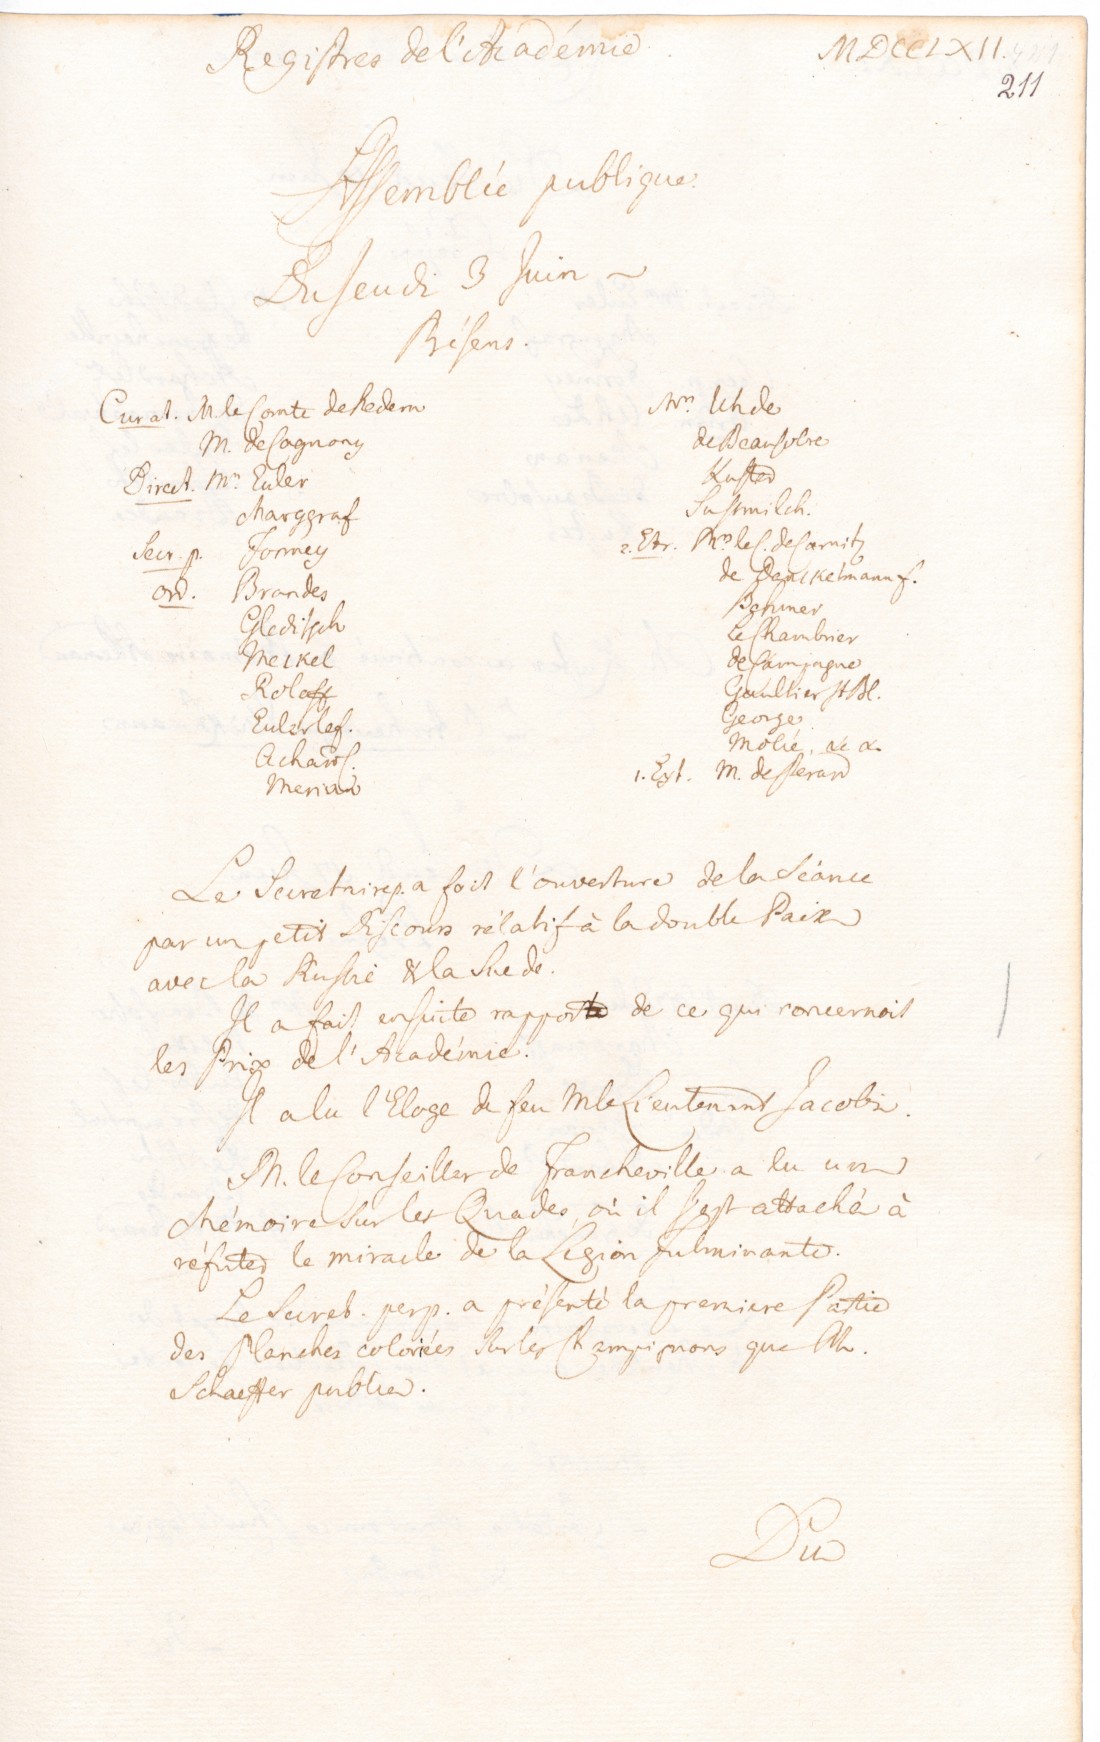 Registres de l'Académie.
MDCCLXII.
211
Assemblée publique.
Du Jeudi 3 Juin ~
Présens.
Curat. M. le Comte de Redern
M. de Cagnony
Direct. Mrs. Euler
Marggraf
Secr. p. Formey
ord. Brandes
Gleditsch
Meckel
Roloff
Euler le f.
Achard
Merian
Mrs. Uhde
de Beausobre
Kuster
Sussmilch.
2. Etr. Mrs le C. de
de Danckelmann f.
Behmer
Le Chambrier
de Campagne
Gaultier St Bl.
George
Molié, &c &c
1. Ext. M. de
Le Secretaire p. a fait l'ouverture de la Séance
par un petit Discours rélatif à la double Paix
avec la Russie & la Suede.
Il a fait ensuite rapport de ce qui concernoit
les Prix de l'Académie.
Il a lu l'Eloge de feu M le Lieutenant Jacobi.
M. le Conseiller de Francheville a lu un
Mémoire sur les Quades, où il s'est attaché à
réfuter le miracle de la Légion fulminante.
Le Secret. perp. a présenté la premiere Partie
des Planches coloriées sur les Champignons que M.
Schaeffer publie.
Du